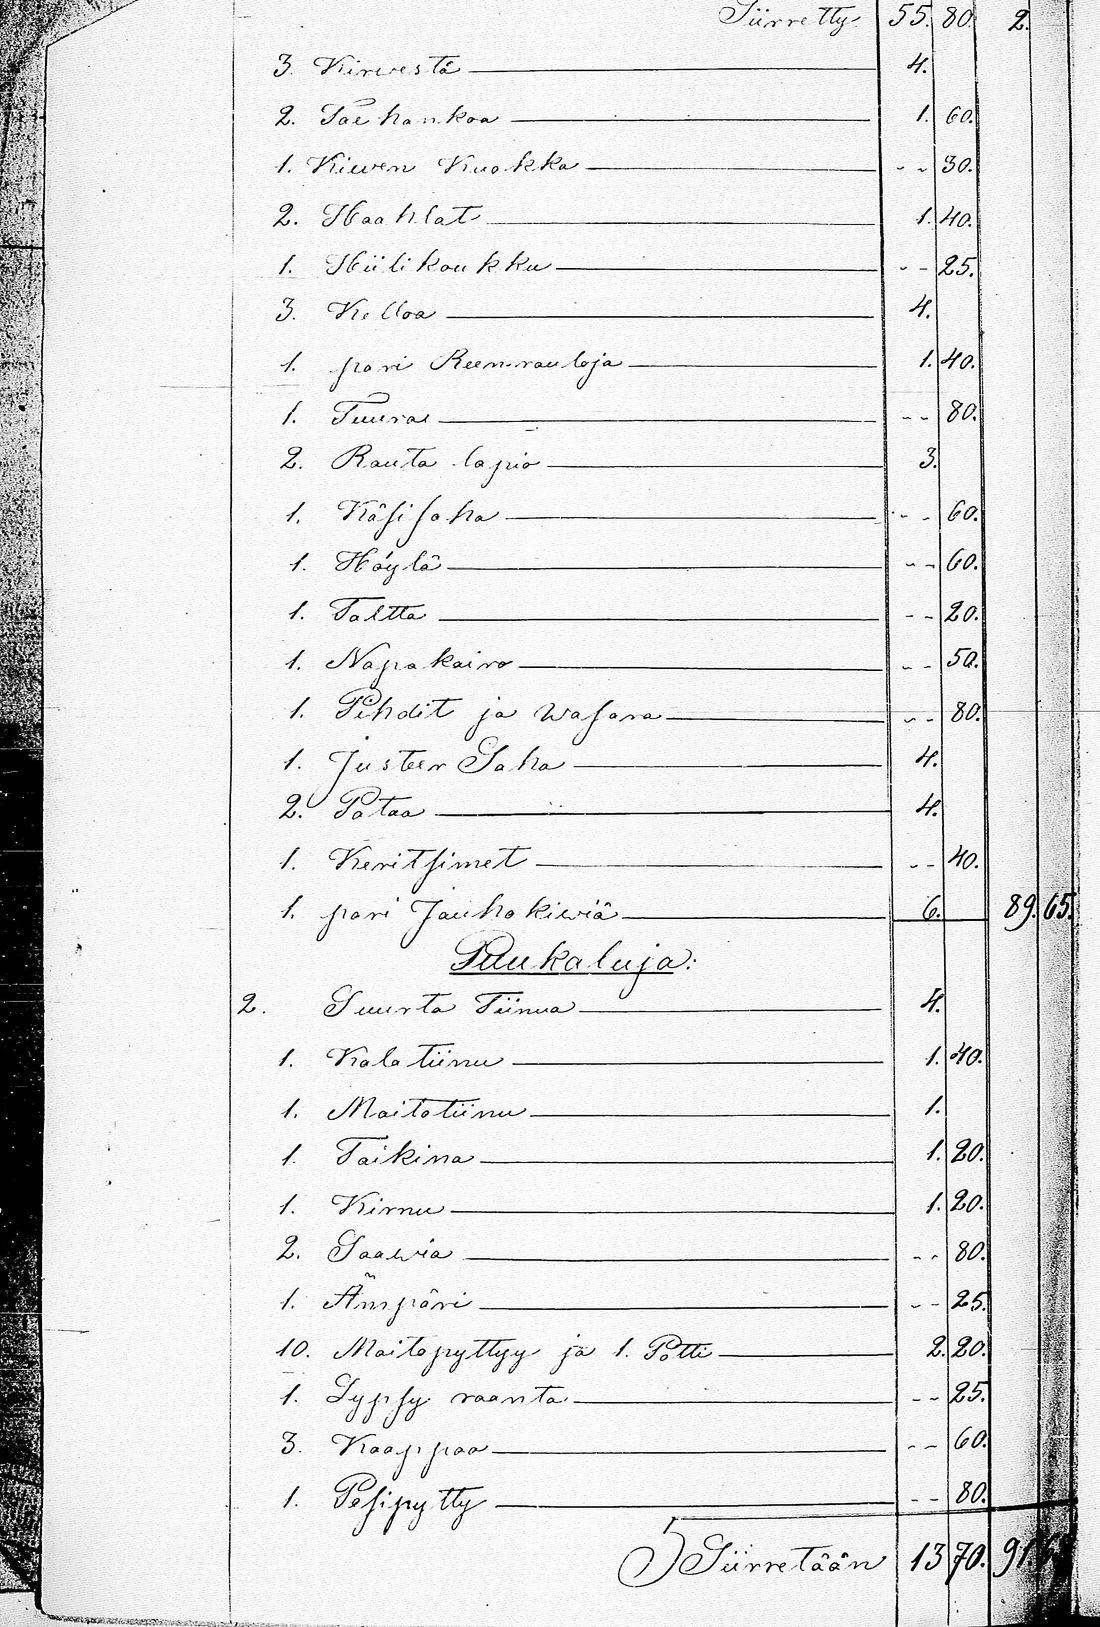 Siirretty 55. 80. 2.
3. Kirwestä 4.
2. Tae hankoa 1. 60.
1. Kiwen Kuokka - - 30.
2. Haahlat 1. 40.
1. Hiilikoukku - - 25.
3. Kelloa 4.
1. pari Reen-rautoja 1. 40.
1. Tuura - - 80.
2. Rauta lapio 3.
1. Käsisaha - - 60.
1. Höylä - - 60.
1. Taltta - - 20.
1. Napakaira - - 50.
1. Pihdit ja wasara - - 80.
1. Justeer Saha 4.
2. Pataa 4.
1. Keritsimet - - 40.
1. pari Jauhokiwiä 6. 89. 65.
Puukaluja:
2. Suurta Tiinua 4.
1. Kalatiinu 1. 40.
1. Maitotiinu 1.
1. Taikina 1. 20.
1. Kirnu 1. 20.
2. Saawia - - 80.
1. Ämpäri - - 25.
10. Maitopyttyy ja 1. Potti 2. 20.
1. Lypsy raanta - - 25.
3. Kaappaa - - 60.
1. Pesipytty - - 80.
Siirretään 13 70. 91